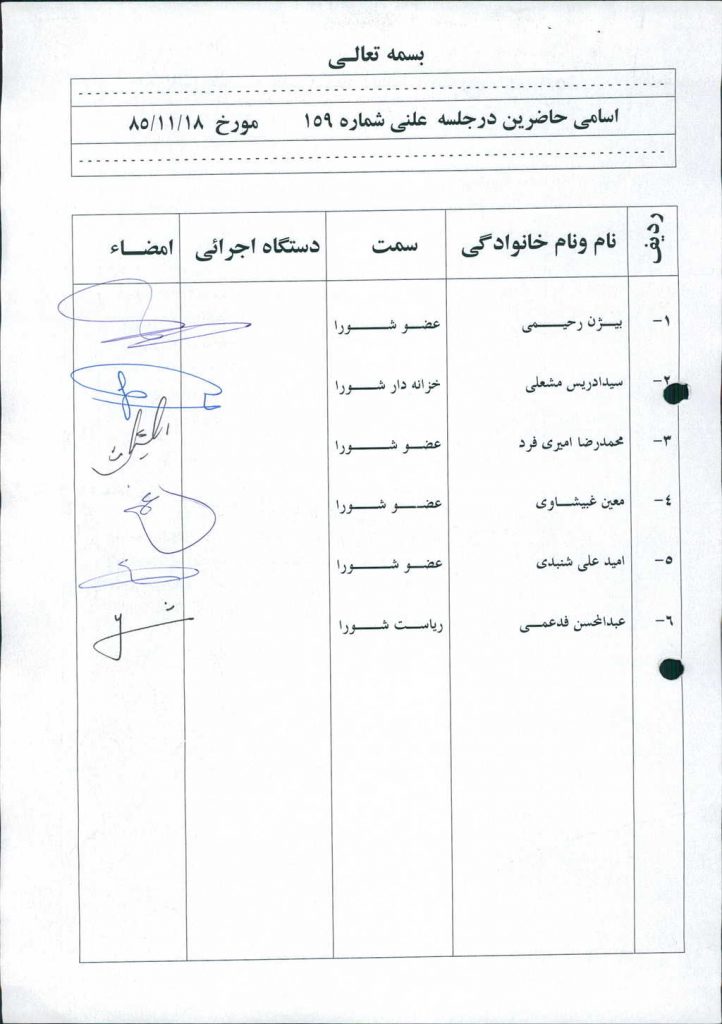 بسمه تعالی
اسامی حاضرین درجلسه علنی شماره ۱۵۹ مورخ ۸۵/۱۱/۱۸
ردیف نام ونام خانوادگی سمت دستگاه اجرائی امضاء
۱- بیژن رحیمی عضو شورا
۲- سیدادریس مشعلی خزانه دار شورا
۳- محمدرضا امیری فرد عضو شورا
۴- معین غبیشاوی عضو شورا
۵- امید علی شنبدی عضو شورا
۶- عبدالحسن فدعمی ریاست شورا